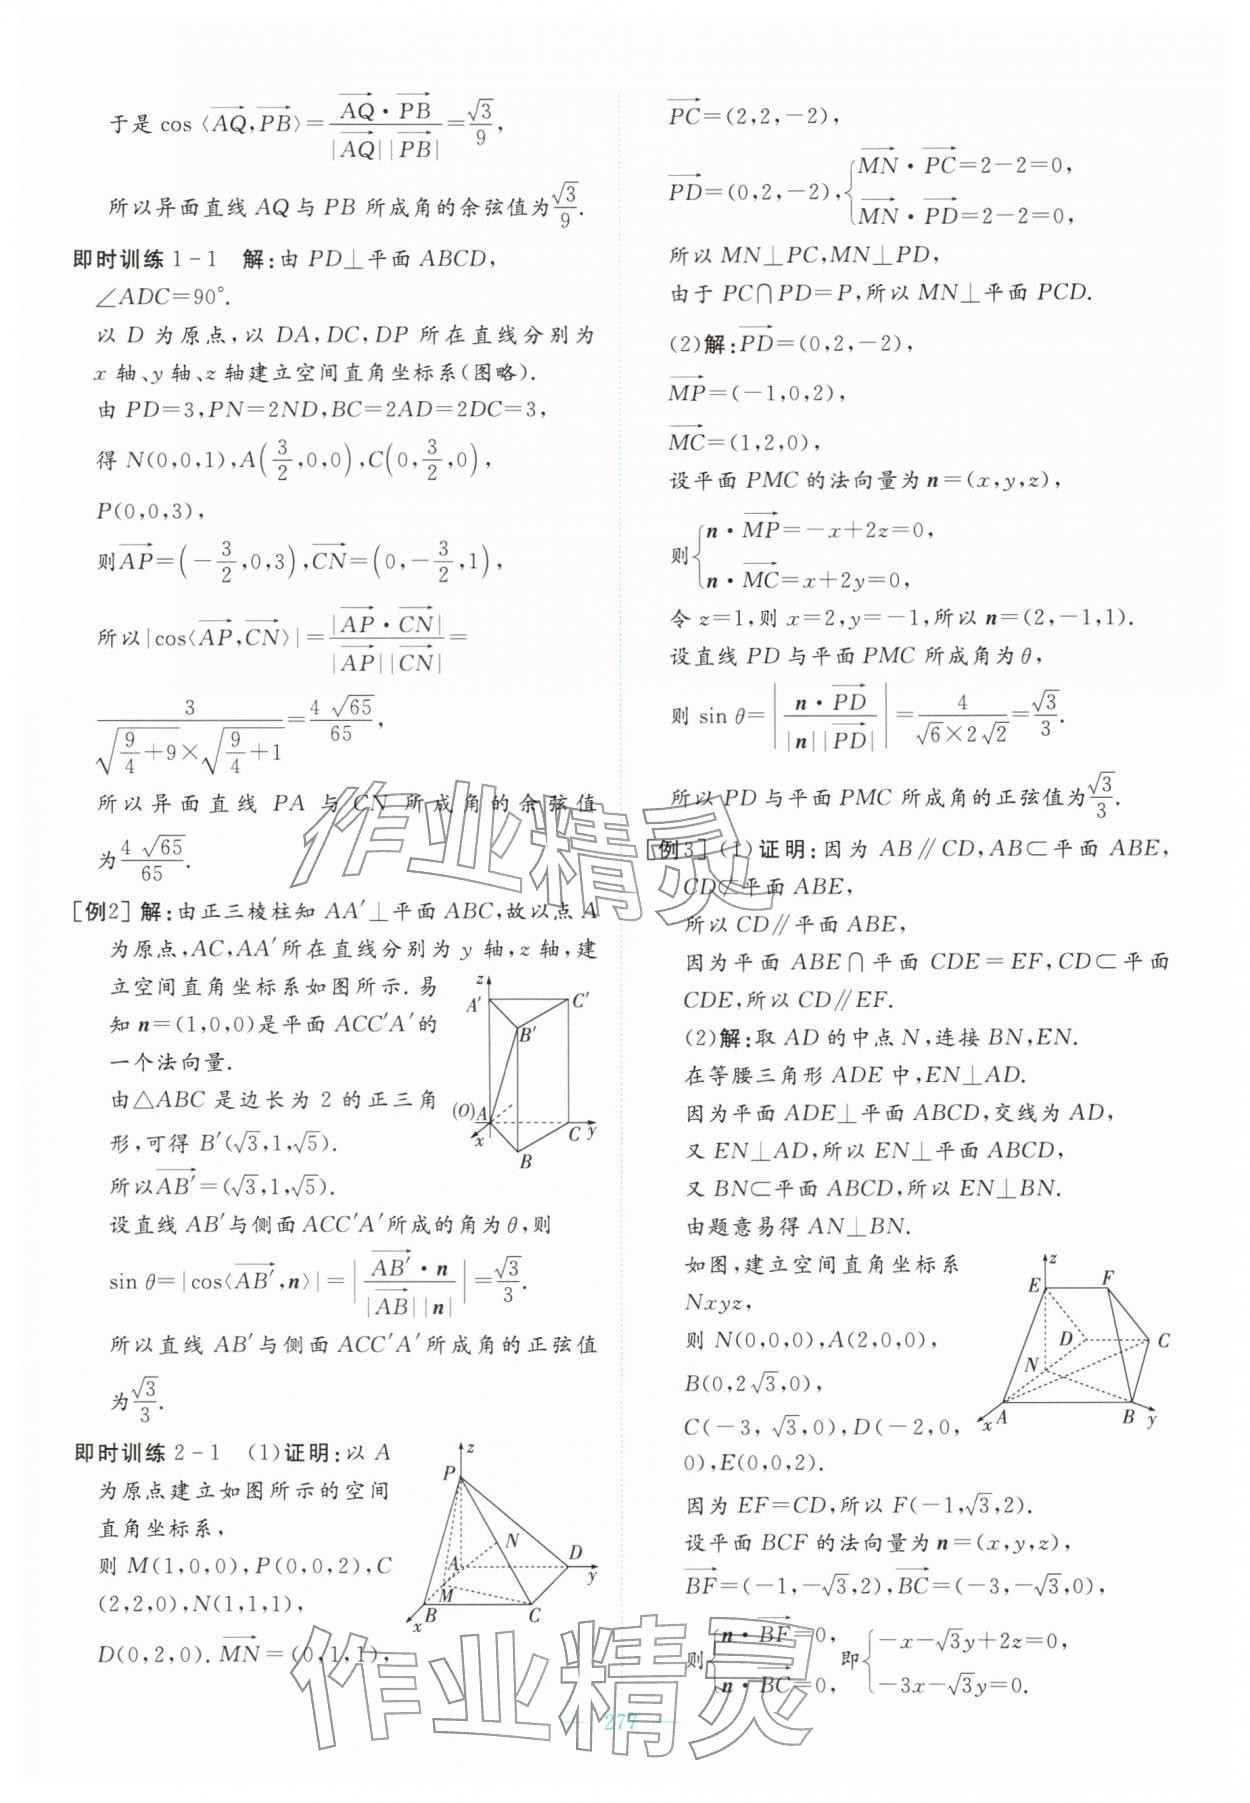 于是 cos⟨AQ→,PB→⟩=(AQ→·PB→)/(|AQ→||PB→|)=√3/9,
所以异面直线 AQ 与 PB 所成角的余弦值为√3/9.
即时训练 1-1 解:由 PD⊥平面 ABCD,
∠ADC=90°.
以 D 为原点,以 DA,DC,DP 所在直线分别为
x 轴、y 轴、z 轴建立空间直角坐标系(图略).
由 PD=3,PN=2ND,BC=2AD=2DC=3,
得 N(0,0,1),A(3/2,0,0),C(0,3/2,0),
P(0,0,3),
则AP→=(-3/2,0,3),CN→=(0,-3/2,1),
所以|cos⟨AP→,CN→⟩|=|AP→·CN→|/(|AP→||CN→|)=
3/(√(9/4+9)×√(9/4+1))=4√65/65,
所以异面直线 PA 与 CN 所成角的余弦值
为4√65/65.
[例2] 解:由正三棱柱知 AA′⊥平面 ABC,故以点 A
为原点,AC,AA′所在直线分别为 y 轴,z 轴,建
立空间直角坐标系如图所示.易
知 n=(1,0,0)是平面 ACC′A′的
一个法向量.
由△ABC 是边长为 2 的正三角
形,可得 B′(√3,1,√5).
所以AB′→=(√3,1,√5).
z
A′
C′
B′
(O)A
x
B
C y
设直线 AB′与侧面 ACC′A′所成的角为θ,则
sin θ=|cos⟨AB′→,n⟩|=|(AB′→·n)/(|AB→||n|)|=√3/3.
所以直线 AB′与侧面 ACC′A′所成角的正弦值
为√3/3.
即时训练 2-1 (1)证明:以 A
为原点建立如图所示的空间
直角坐标系,
则 M(1,0,0),P(0,0,2),C
(2,2,0),N(1,1,1),
D(0,2,0).MN→=(0,1,1),
z
P
N
A
D
y
M
B
C
x
PC→=(2,2,-2),
PD→=(0,2,-2),{MN→·PC→=2-2=0,
MN→·PD→=2-2=0,
所以 MN⊥PC,MN⊥PD,
由于 PC∩PD=P,所以 MN⊥平面 PCD.
(2)解:PD→=(0,2,-2),
MP→=(-1,0,2),
MC→=(1,2,0),
设平面 PMC 的法向量为 n=(x,y,z),
则{n·MP→=-x+2z=0,
n·MC→=x+2y=0,
令 z=1,则 x=2,y=-1,所以 n=(2,-1,1).
设直线 PD 与平面 PMC 所成角为θ,
则 sin θ=|(n·PD→)/(|n||PD→|)|=4/(√6×2√2)=√3/3.
所以 PD 与平面 PMC 所成角的正弦值为√3/3.
[例3] (1)证明:因为 AB∥CD,AB⊂平面 ABE,
CD⊄平面 ABE,
所以 CD∥平面 ABE,
因为平面 ABE∩平面 CDE=EF,CD⊂平面
CDE,所以 CD∥EF.
(2)解:取 AD 的中点 N,连接 BN,EN.
在等腰三角形 ADE 中,EN⊥AD.
因为平面 ADE⊥平面 ABCD,交线为 AD,
又 EN⊥AD,所以 EN⊥平面 ABCD,
又 BN⊂平面 ABCD,所以 EN⊥BN.
由题意易得 AN⊥BN.
如图,建立空间直角坐标系
Nxyz,
则 N(0,0,0),A(2,0,0),
B(0,2√3,0),
C(-3,√3,0),D(-2,0,
0),E(0,0,2).
z
E
F
D
C
N
x
A
B
y
因为 EF=CD,所以 F(-1,√3,2).
设平面 BCF 的法向量为 n=(x,y,z),
BF→=(-1,-√3,2),BC→=(-3,-√3,0),
则{n·BF→=0, 即{-x-√3y+2z=0,
n·BC→=0, -3x-√3y=0.
作业精灵
作业精灵
277